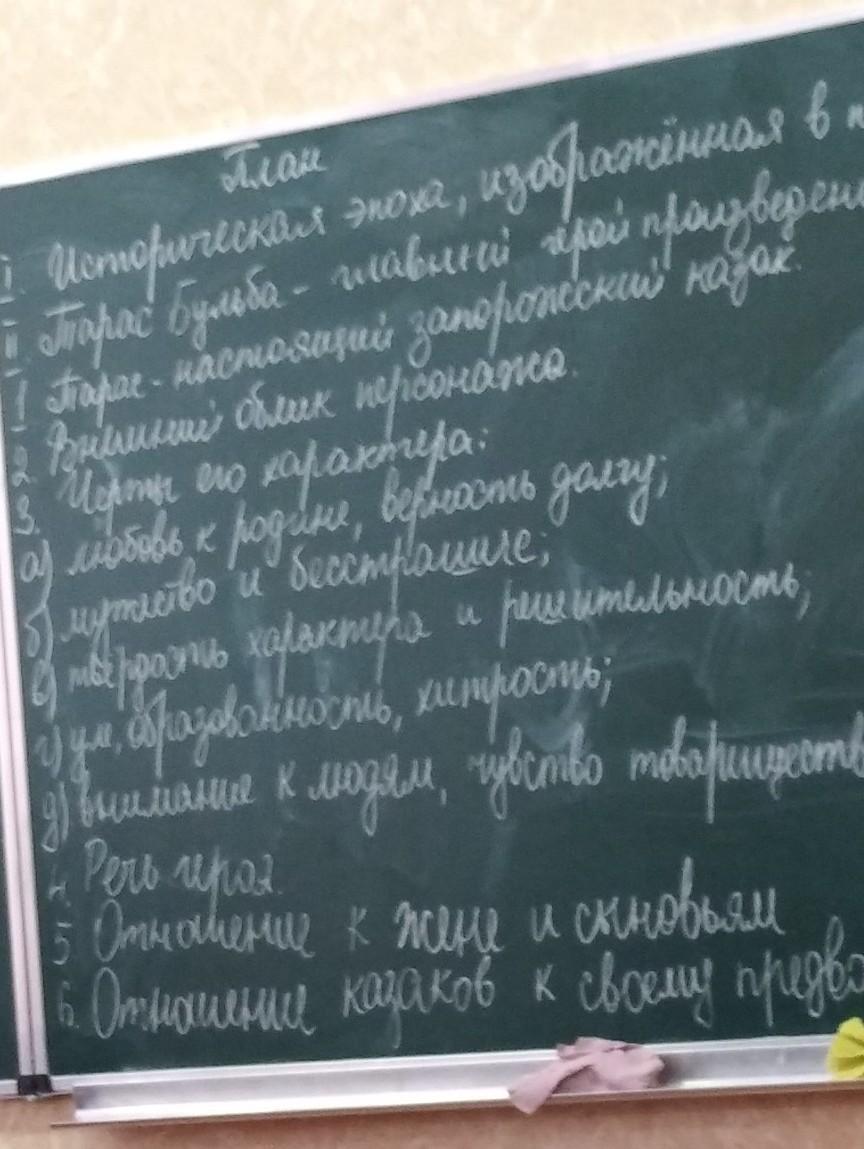 План
I. Историческая эпоха, изображённая в п
II. Тарас Бульба - главный герой произведени
1. Тарас - настоящий запорожский казак.
2. Внешний облик персонажа.
3. Черты его характера:
а) любовь к родине, верность долгу;
б) мужество и бесстрашие;
в) твёрдость характера и решительность;
г) ум, образованность, хитрость;
д) внимание к людям, чувство товариществ
4. Речь героя.
5. Отношение к жене и сыновьям
6. Отношение казаков к своему предво